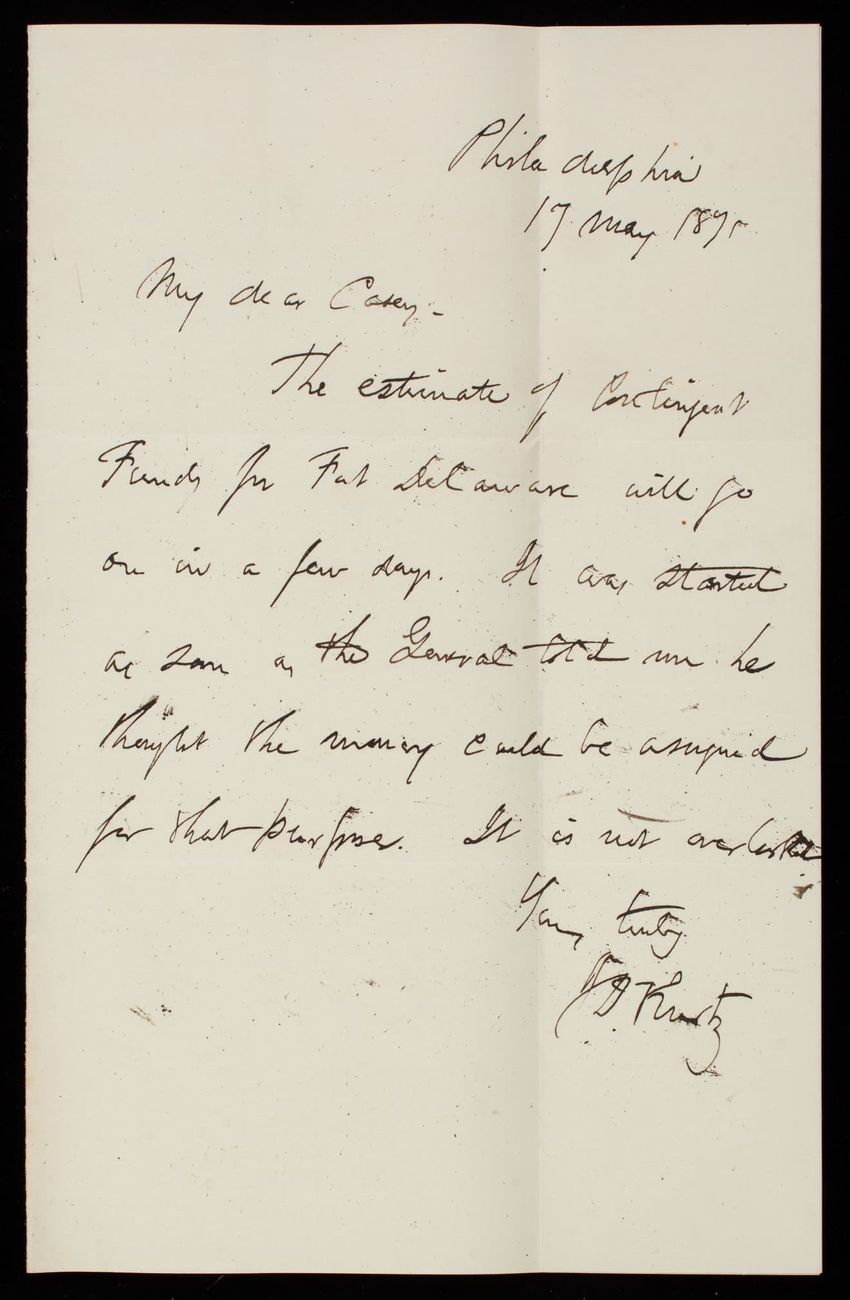 Philadelphia
17 May 1875
My dear Casey -
The estimate of Contingent
Funds for Fort Delaware will go
on in a few days. It was started
as soon as the General told me he
thought the money could be assigned
for that purpose. It is not overlooked
Yours truly
J D. Kurtz